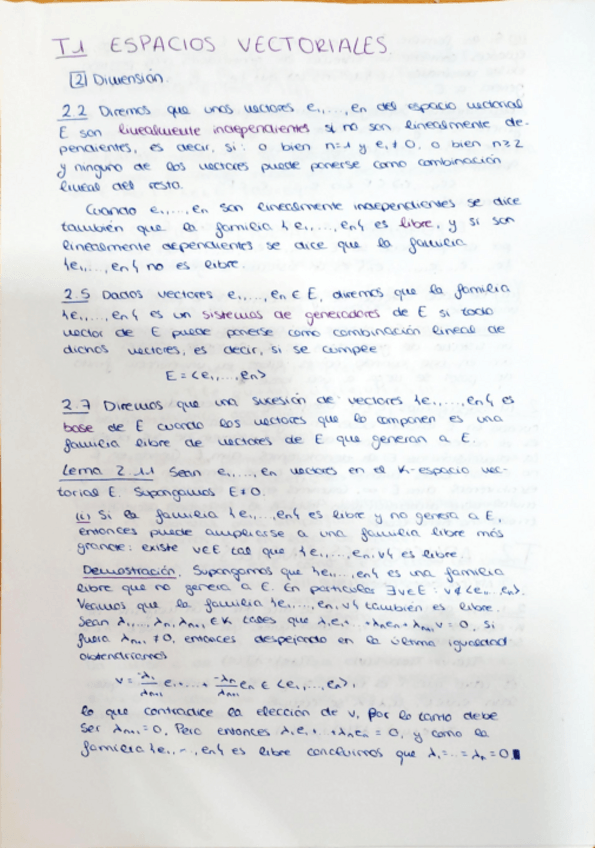 T.1 ESPACIOS VECTORIALES
[2] Dimensión.
2.2 Diremos que unos vectores e₁,...,en del espacio vectorial
E son linealmente independientes si no son linealmente de-
pendientes, es decir, si: o bien n=1 y e₁≠0, o bien n≥2
y ninguno de los vectores puede ponerse como combinación
lineal del resto.
Cuando e₁,...,en son linealmente independientes se dice
también que la familia {e₁,...,en} es libre, y si son
linealmente dependientes se dice que la familia
{e₁,...,en} no es libre.
2.5 Dados vectores e₁,...,en ∈ E, diremos que la familia
{e₁,...,en} es un sistemas de generadores de E si todo
vector de E puede ponerse como combinación lineal de
dichos vectores, es decir, si se cumple
E = <e₁,...,en>
2.7 Diremos que una sucesión de vectores {e₁,...,en} es
base de E cuando los vectores que lo componen es una
familia libre de vectores de E que generan a E.
Lema 2.1.1 Sean e₁,...,en vectores en el K-espacio vec-
torial E. Supongamos E≠0.
(i) Si la familia {e₁,...,en} es libre y no genera a E,
entonces puede ampliarse a una familia libre más
grande: existe v∈E tal que {e₁,...,en,v} es libre.
Demostración. Supongamos que {e₁,...,en} es una familia
libre que no genera a E. En particular ∃v∈E : v∉<e₁,...,en>.
Veamos que la familia {e₁,...,en,v} también es libre.
Sean λ₁,...,λn,λn+1 ∈ K tales que λ₁e₁+...+λnen+λn+1v = 0. Si
fuera λn+1 ≠ 0, entonces despejando en la última igualdad
obtendríamos
v = -λ₁/λn+1 e₁+...+ -λn/λn+1 en ∈ <e₁,...,en>,
lo que contradice la elección de v, por lo tanto debe
ser λn+1=0. Pero entonces λ₁e₁+...+λnen = 0, y como la
familia {e₁,...,en} es libre concluimos que λ₁=...=λn=0.■